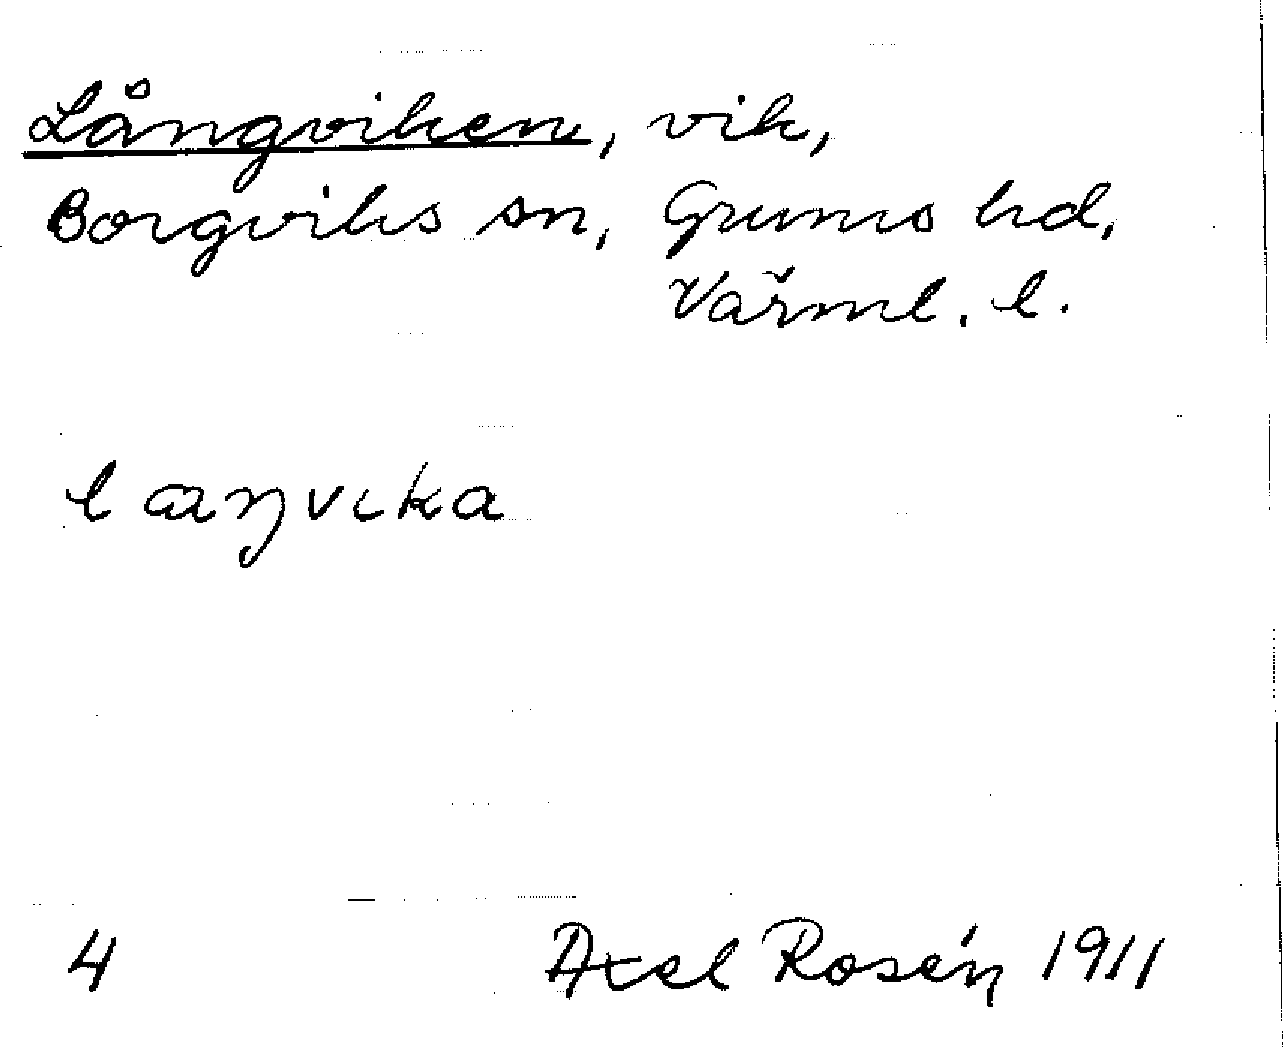 Långviken, vik,
Borgviks sn, Grums hd,
Värml. l.
laŋvɩka
4 Axel Rosén 1911